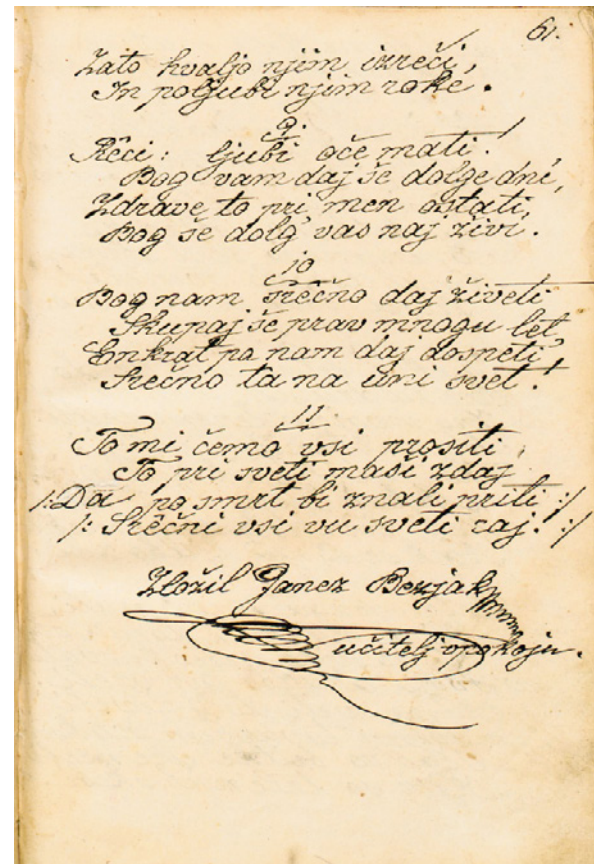 61.
Zato hvaljo njim izreči,
In poljubi njim roke.
9.
Rêci: ljubi oče mati!
Bog vam daj še dolge dni,
Zdrave to pri men ostati,
Bog še dolg' vas naj živi.
10
Bog nam srêčno daj živeti
Skupaj še prav mnogu let
Enkrat pa nam daj dospeti,
Srečno ta na uni svet!
11.
To mi čemo vsi prositi,
To pri sveti maši zdaj
/: Da po smrt bi znali priti :/
/: Srêčni vsi vu sveti raj! :/
Zložil Janez Bezjak
učitelj v pokoju.